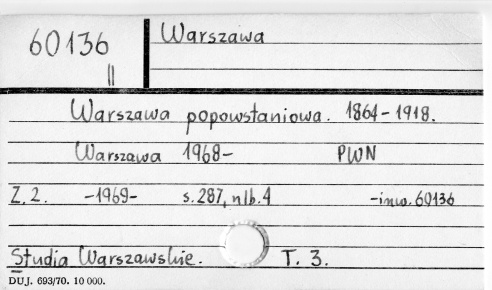 60136
II
Warszawa
Warszawa popowstaniowa. 1864-1918.
Warszawa 1968- PWN
Z. 2. -1969- s. 287, nlb. 4 -inw. 60136
Studia Warszawskie. T. 3.
DUJ. 693/70. 10 000.